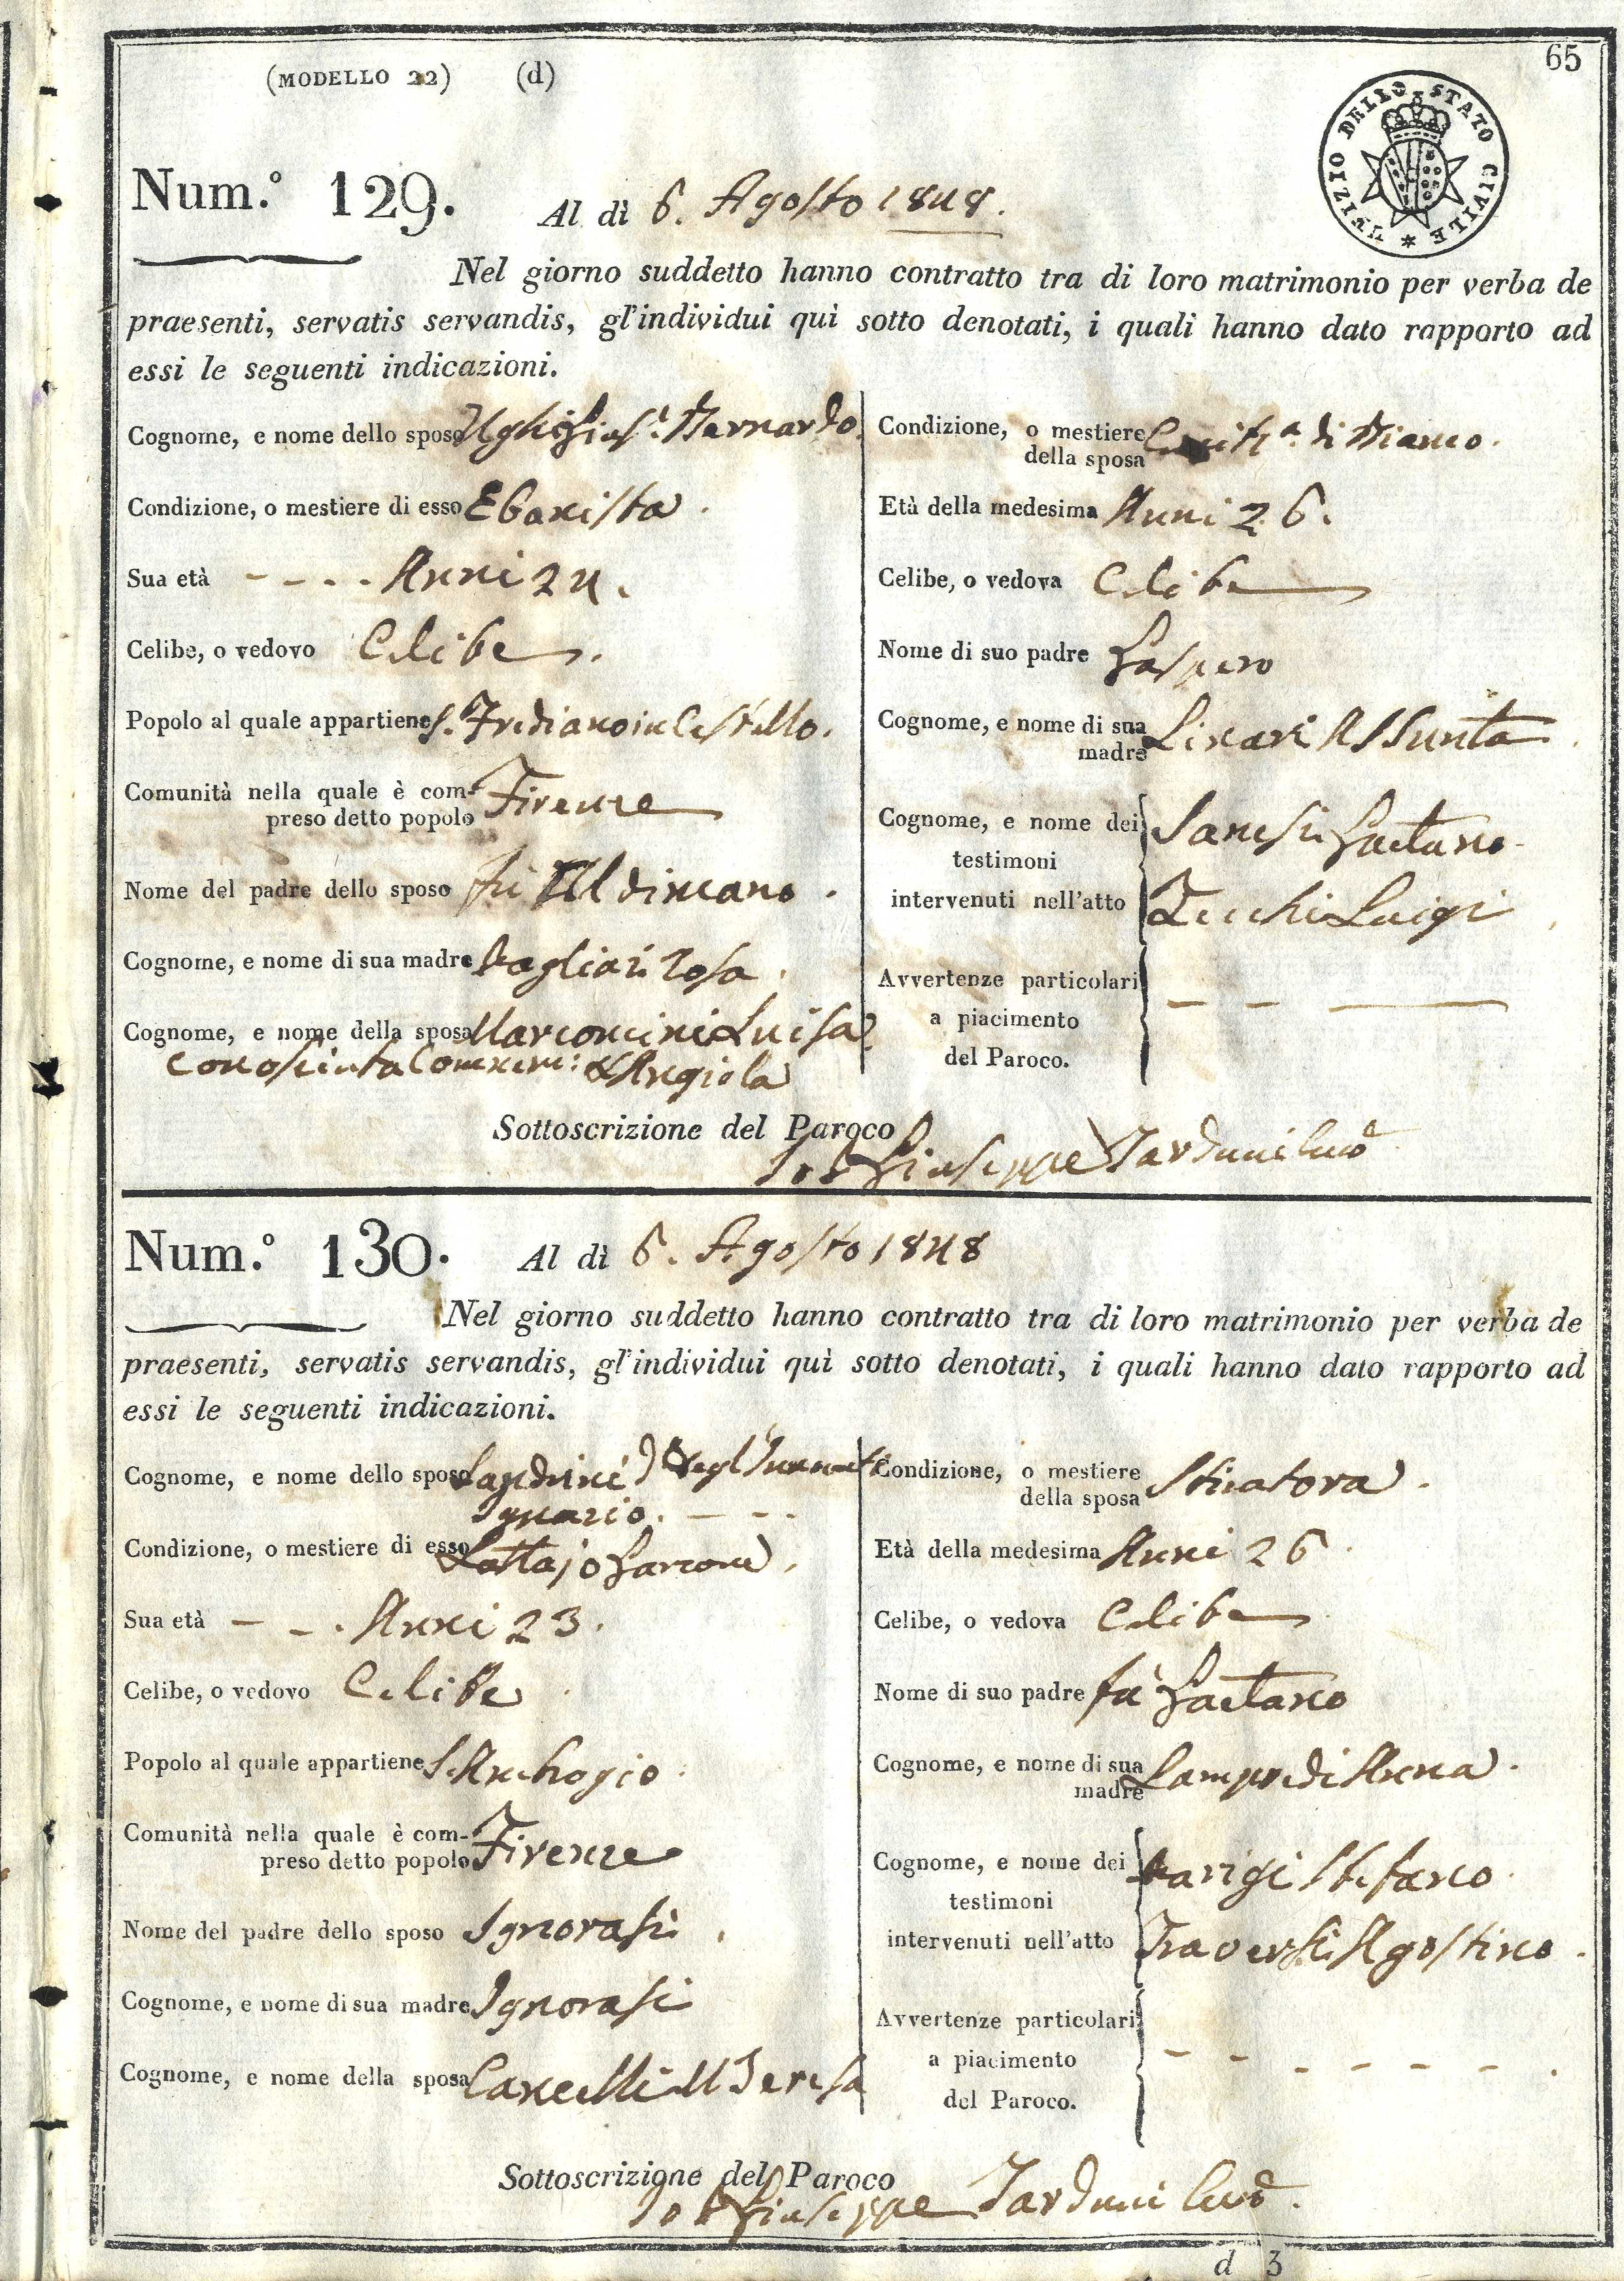 65
(MODELLO 22) (d)
UFIZIO DELLO STATO CIVILE
Num.º 129. Al dì 6. Agosto 1848.
Nel giorno suddetto hanno contratto tra di loro matrimonio per verba de
praesenti, servatis servandis, gl'individui quì sotto denotati, i quali hanno dato rapporto ad
essi le seguenti indicazioni.
Cognome, e nome dello sposo Ughi Bernardo.
Condizione, o mestiere di esso Ebanista.
Sua età - - - - Anni 24.
Celibe, o vedovo Celibe.
Popolo al quale appartiene S. Frediano in Cestello.
Comunità nella quale è com-
preso detto popolo Firenze
Nome del padre dello sposo fù
Cognome, e nome di sua madre Rosa
Cognome, e nome della sposa Marconcini Luisa
conosciuta Angiola
Condizione, o mestiere
della sposa di Bianco.
Età della medesima Anni 26.
Celibe, o vedova Celibe
Nome di suo padre Gaspero
Cognome, e nome di sua
madre Linari Assunta
Cognome, e nome dei
testimoni
intervenuti nell'atto
Sanesi Gaetano
Zecchi Luigi
Avvertenze particolari
a piacimento
del Paroco.
Sottoscrizione del Paroco
Giuseppe Tarduni
Num.º 130. Al dì 6. Agosto 1848
Nel giorno suddetto hanno contratto tra di loro matrimonio per verba de
praesenti, servatis servandis, gl'individui quì sotto denotati, i quali hanno dato rapporto ad
essi le seguenti indicazioni.
Cognome, e nome dello sposo Landrini
Ignazio. - - -
Condizione, o mestiere di esso Lattajo Garzone.
Sua età - - . Anni 23.
Celibe, o vedovo Celibe
Popolo al quale appartiene
Comunità nella quale è com-
preso detto popolo Firenze
Nome del padre dello sposo Ignorasi
Cognome, e nome di sua madre Ignorasi
Cognome, e nome della sposa Cancelli M Teresa
Condizione, o mestiere
della sposa Stiratora.
Età della medesima Anni 26
Celibe, o vedova Celibe
Nome di suo padre fù Gaetano
Cognome, e nome di sua
madre Lampredi Anna.
Cognome, e nome dei
testimoni
intervenuti nell'atto
Parigi Stefano
Traversi Agostino.
Avvertenze particolari
a piacimento
del Paroco.
Sottoscrizione del Paroco
Giuseppe Tarduni
d 3